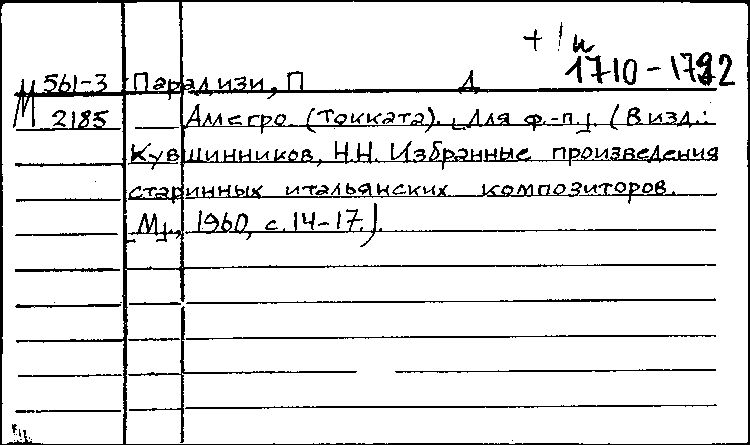 + ! н
М 561-3 Парадизи, П Д 1710-1792
2185 Аллегро (Токката). [Для ф.-п.]. (В изд.:
Кувшинников, Н.Н. Избранные произведения
старинных итальянских композиторов.
[М.], 1960, с.14-17.).